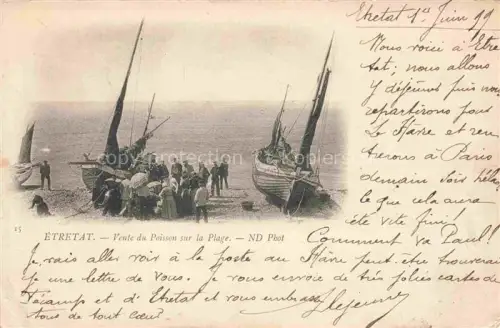 Etretat 1er Juin 99
Nous voici à Etre
tat; nous allons
y déjeuner puis nous
repartirons pour
Le Havre et ren
trerons à Paris
demain soir hélas
ce que cela aura
été vite fini!
Comment va Paul!
15
ÉTRETAT. — Vente du Poisson sur la Plage. — ND Phot
Je vais aller voir à la Poste au Havre peut-être trouverai
je une lettre de vous. Je vous envoie de très jolies cartes de
Fécamp et d'Etretat et vous embrasse
tous de tout cœur
Lejeune